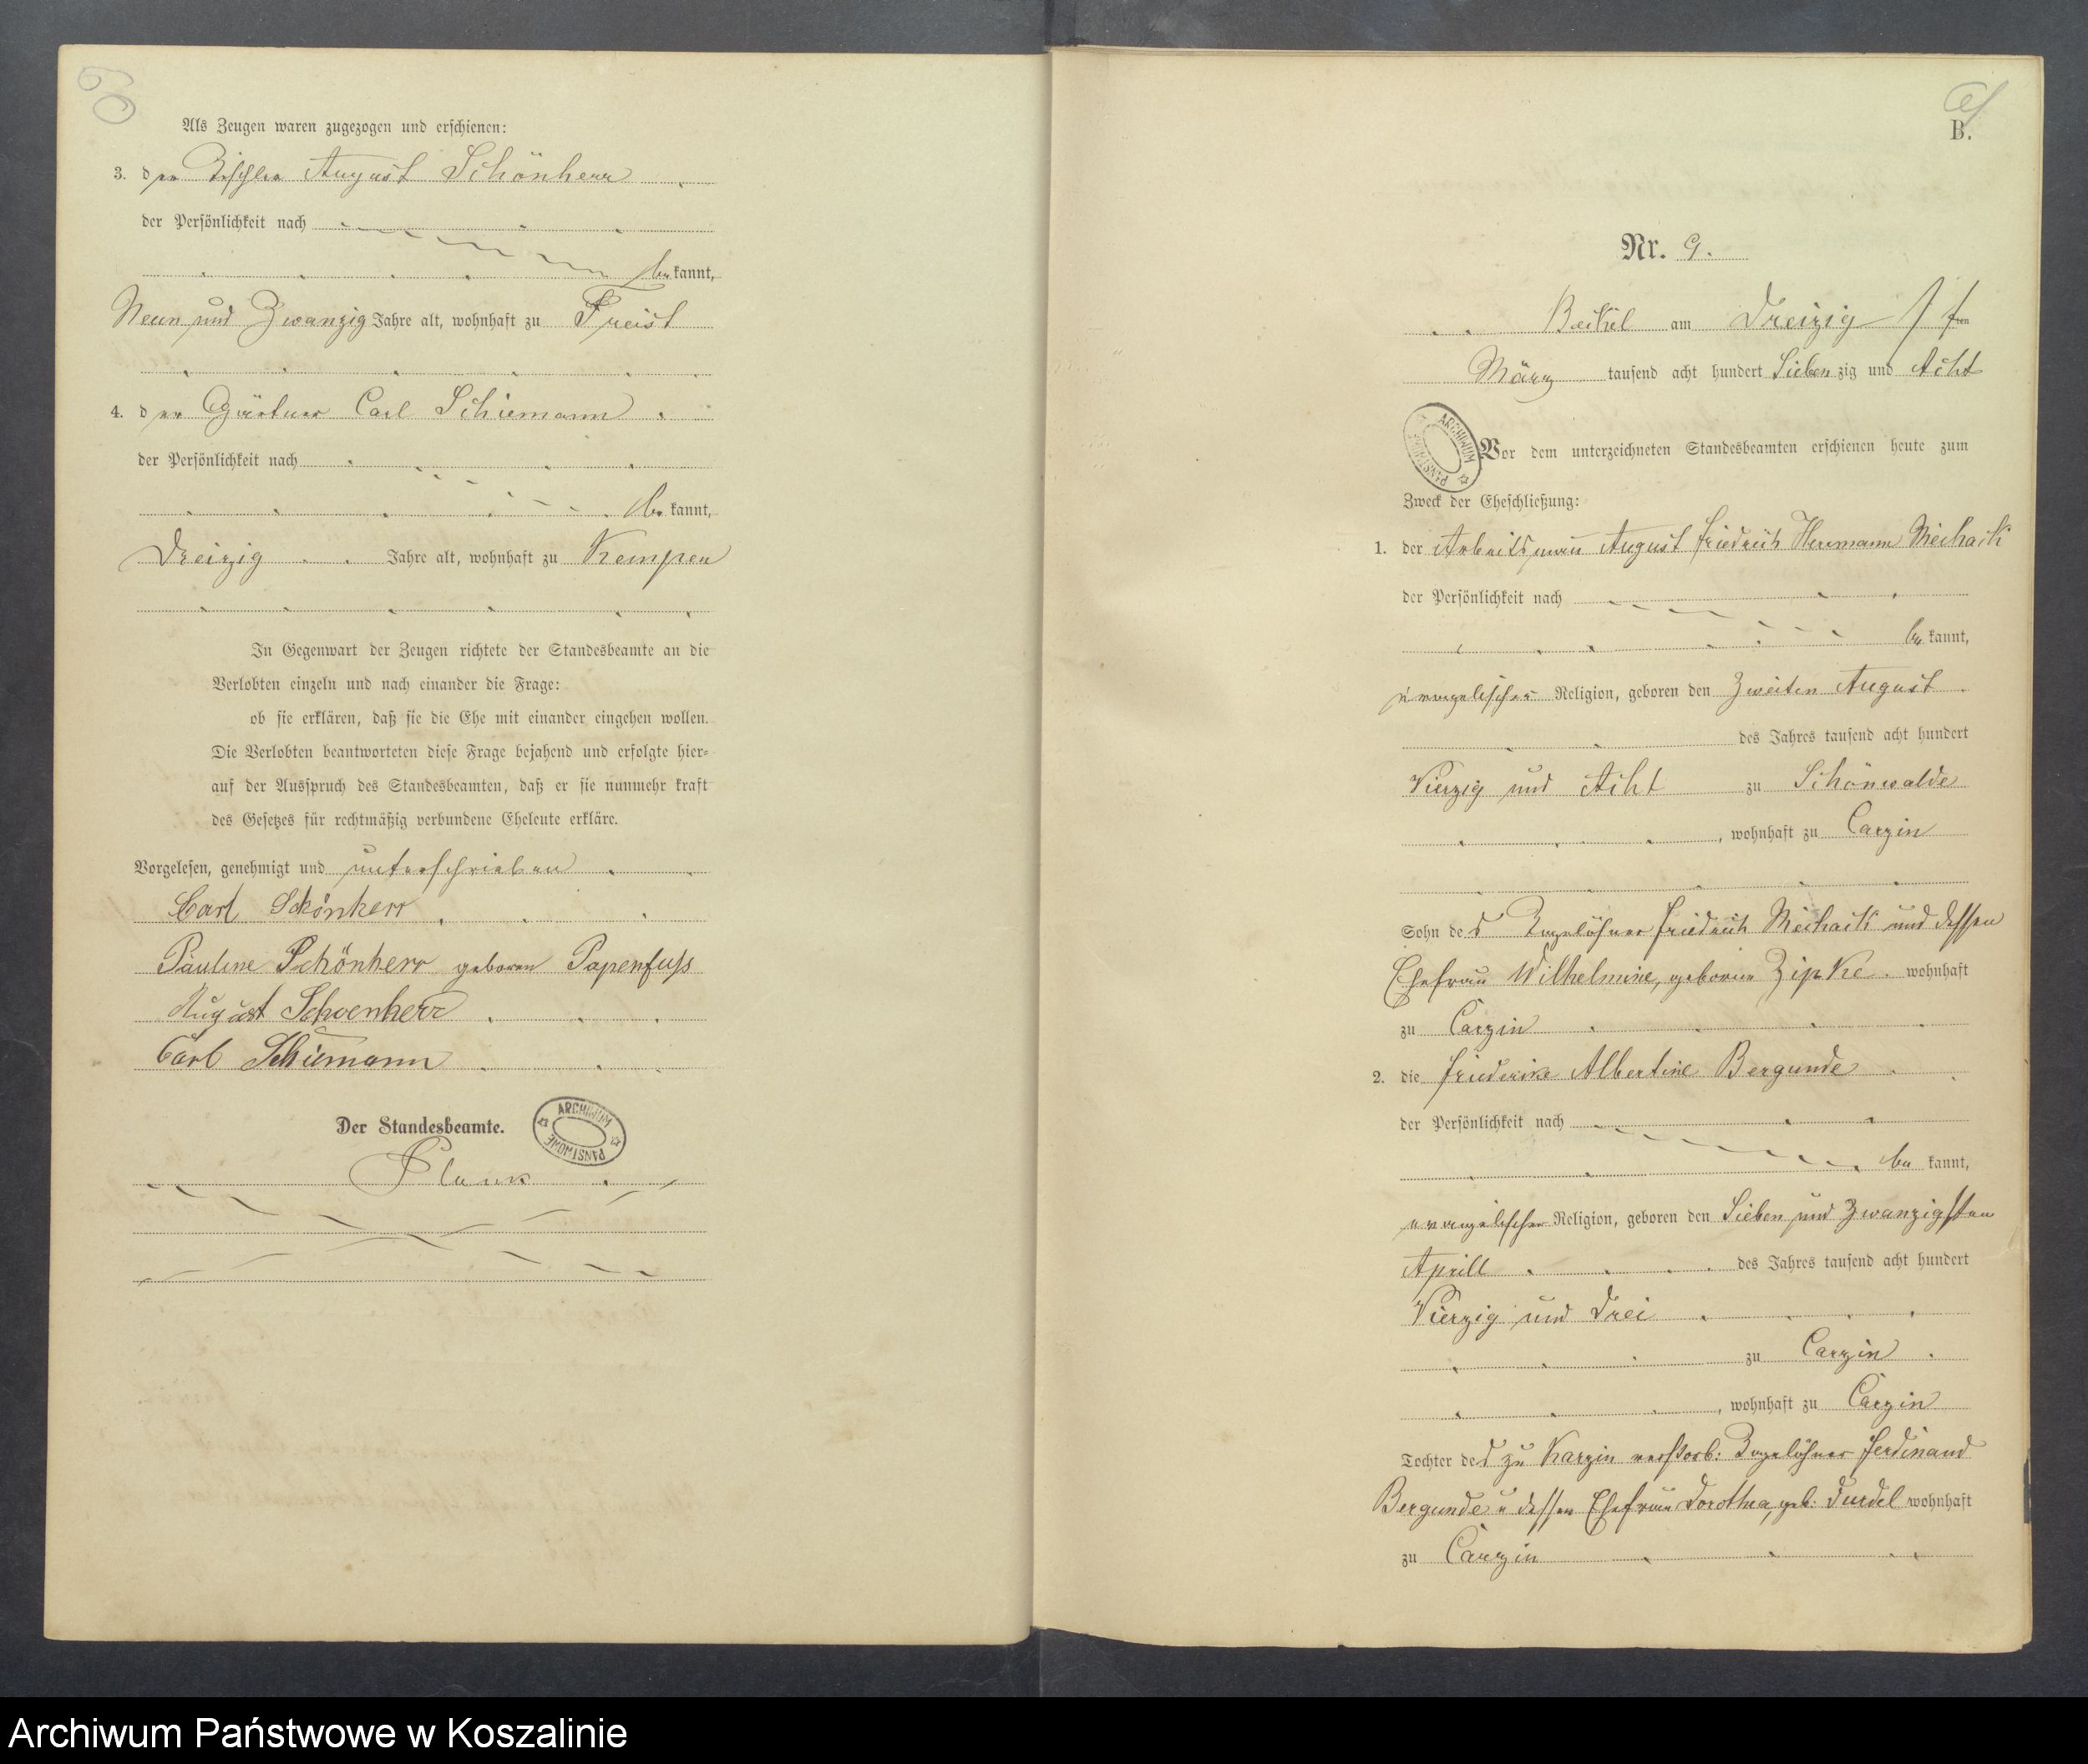 Als Zeugen waren zugezogen und erschienen:
3. der Tischler August Schönherr
der Persönlichkeit nach
bekannt,
Neun und Zwanzig Jahre alt, wohnhaft zu Freist
4. der Gärtner Carl Schiemann
der Persönlichkeit nach
bekannt,
Dreizig Jahre alt, wohnhaft zu Kempen
In Gegenwart der Zeugen richtete der Standesbeamte an die
Verlobten einzeln und nach einander die Frage:
ob sie erklären, daß sie die Ehe mit einander eingehen wollen.
Die Verlobten beantworteten diese Frage bejahend und erfolgte hier-
auf der Ausspruch des Standesbeamten, daß er sie nunmehr kraft
des Gesetzes für rechtmäßig verbundene Eheleute erkläre.
Vorgelesen, genehmigt und unterschrieben
Carl Schönherr
Pauline Schönherr geboren Papenfuß
August Schoenherr
Carl Schiemann
Der Standesbeamte.
ARCHIWUM PAŃSTWOWE
B.
Nr. 9.
am Dreizig
März tausend acht hundert Siebenzig und Acht
ARCHIWUM PAŃSTWOWE
Vor dem unterzeichneten Standesbeamten erschienen heute zum
Zweck der Eheschließung:
1. der Arbeitsmann August Friedrich Herrmann
der Persönlichkeit nach
bekannt,
evangelischer Religion, geboren den Zweiten August
des Jahres tausend acht hundert
Vierzig und Acht zu Schönwalde
, wohnhaft zu Carzin
Sohn des Tagelöhner Friedrich und dessen
Ehefrau Wilhelmine, geborne Zipke. wohnhaft
zu Carzin
2. die Friederike Albertine Bergunde
der Persönlichkeit nach
bekannt,
evangelischer Religion, geboren den Sieben und Zwanzigsten
Aprill des Jahres tausend acht hundert
Vierzig und Drei
zu Carzin
, wohnhaft zu Carzin
Tochter des zu Karzin verstorb: Tagelöhner Ferdinand
Bergunde u dessen Ehefrau Dorothea, geb: wohnhaft
zu Carzin
Archiwum Państwowe w Koszalinie